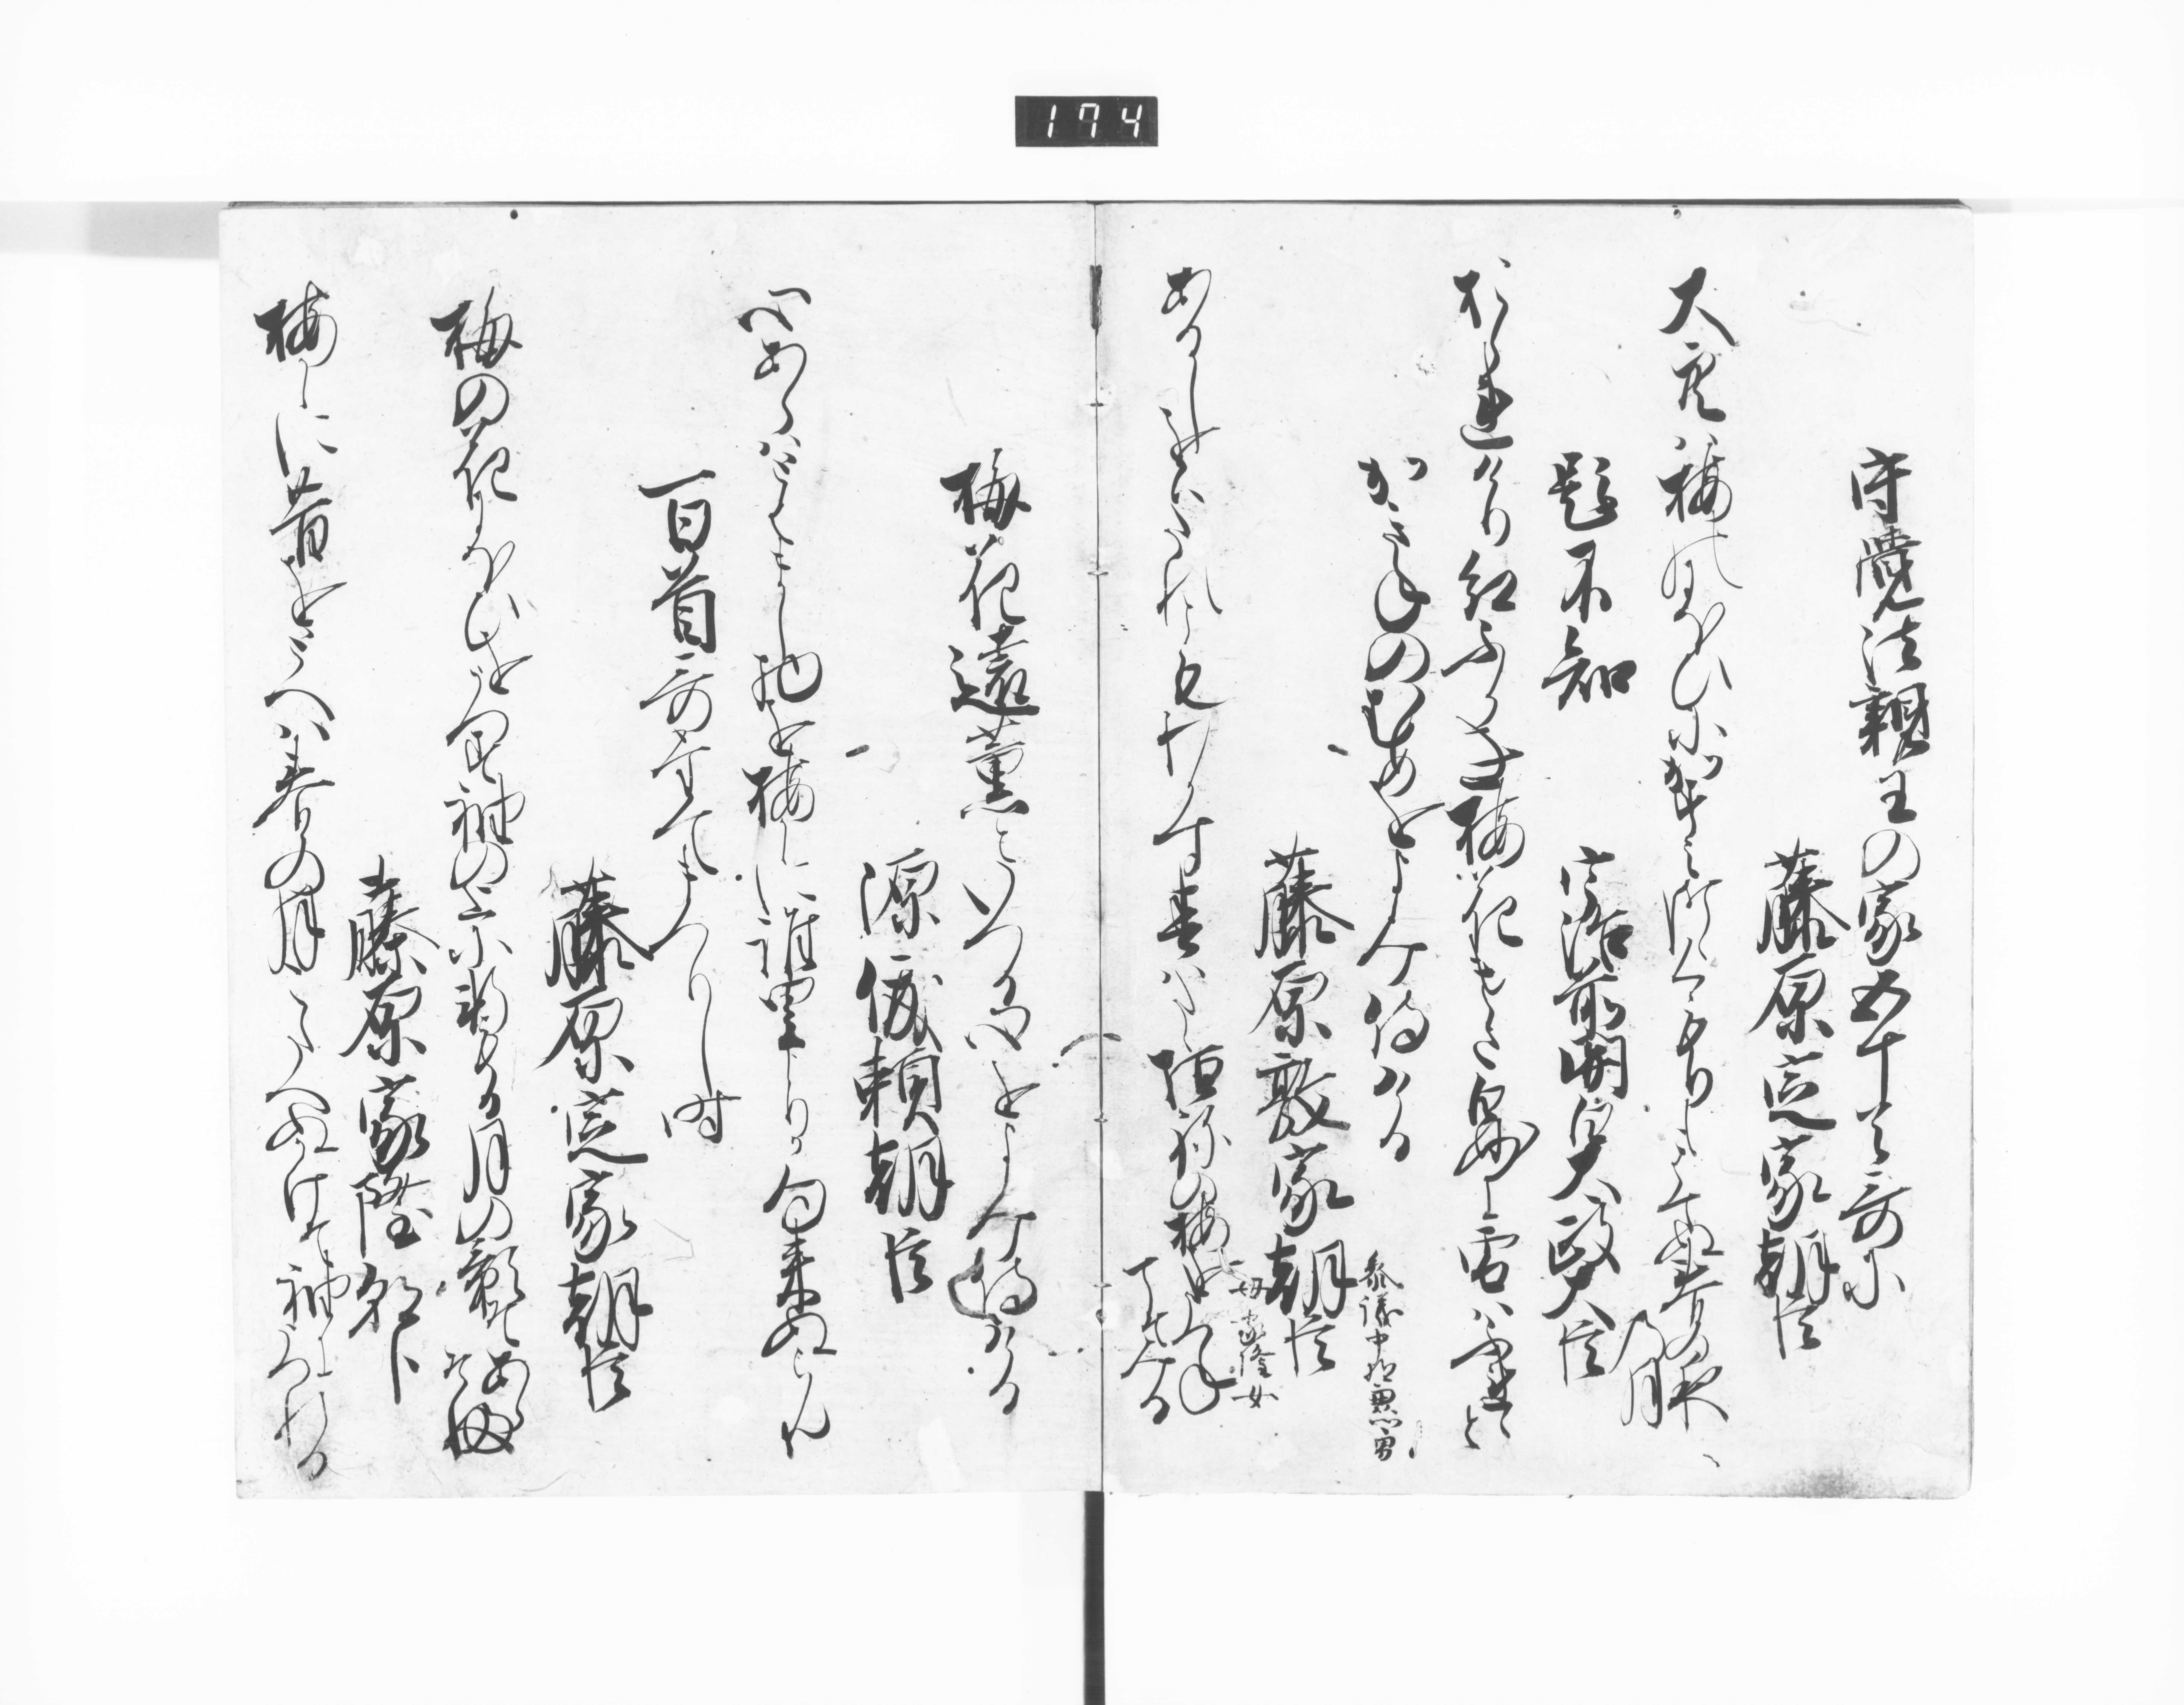 174
守覚法親王の家五十首哥に
藤原定家朝臣
大空は梅のにほひにかすみつゝくもりもはてぬ春の夜の月
題不知
宇治前関白太政大臣
おられけり紅ふかき梅花けさ白妙に雪はふれとも
かきねのむめをよみ侍ける
藤原敦家朝臣
参議中将兼男
母家隆女
あるしをはたれともわかす春はたゝ垣ねの梅をたつねてそみる
梅花遠薫といへる心をよみ侍ける
源俊頼朝臣
心あらはとはまし物を梅かゝに誰里よりか匂来ぬらん
百首哥たてまつりし時
藤原定家朝臣
梅の花にほひをうつす袖の上に軒もる月の影そあらそふ
藤原家隆朝臣
梅かゝに昔をとへは春の月こたへぬかけそ袖にうつれる